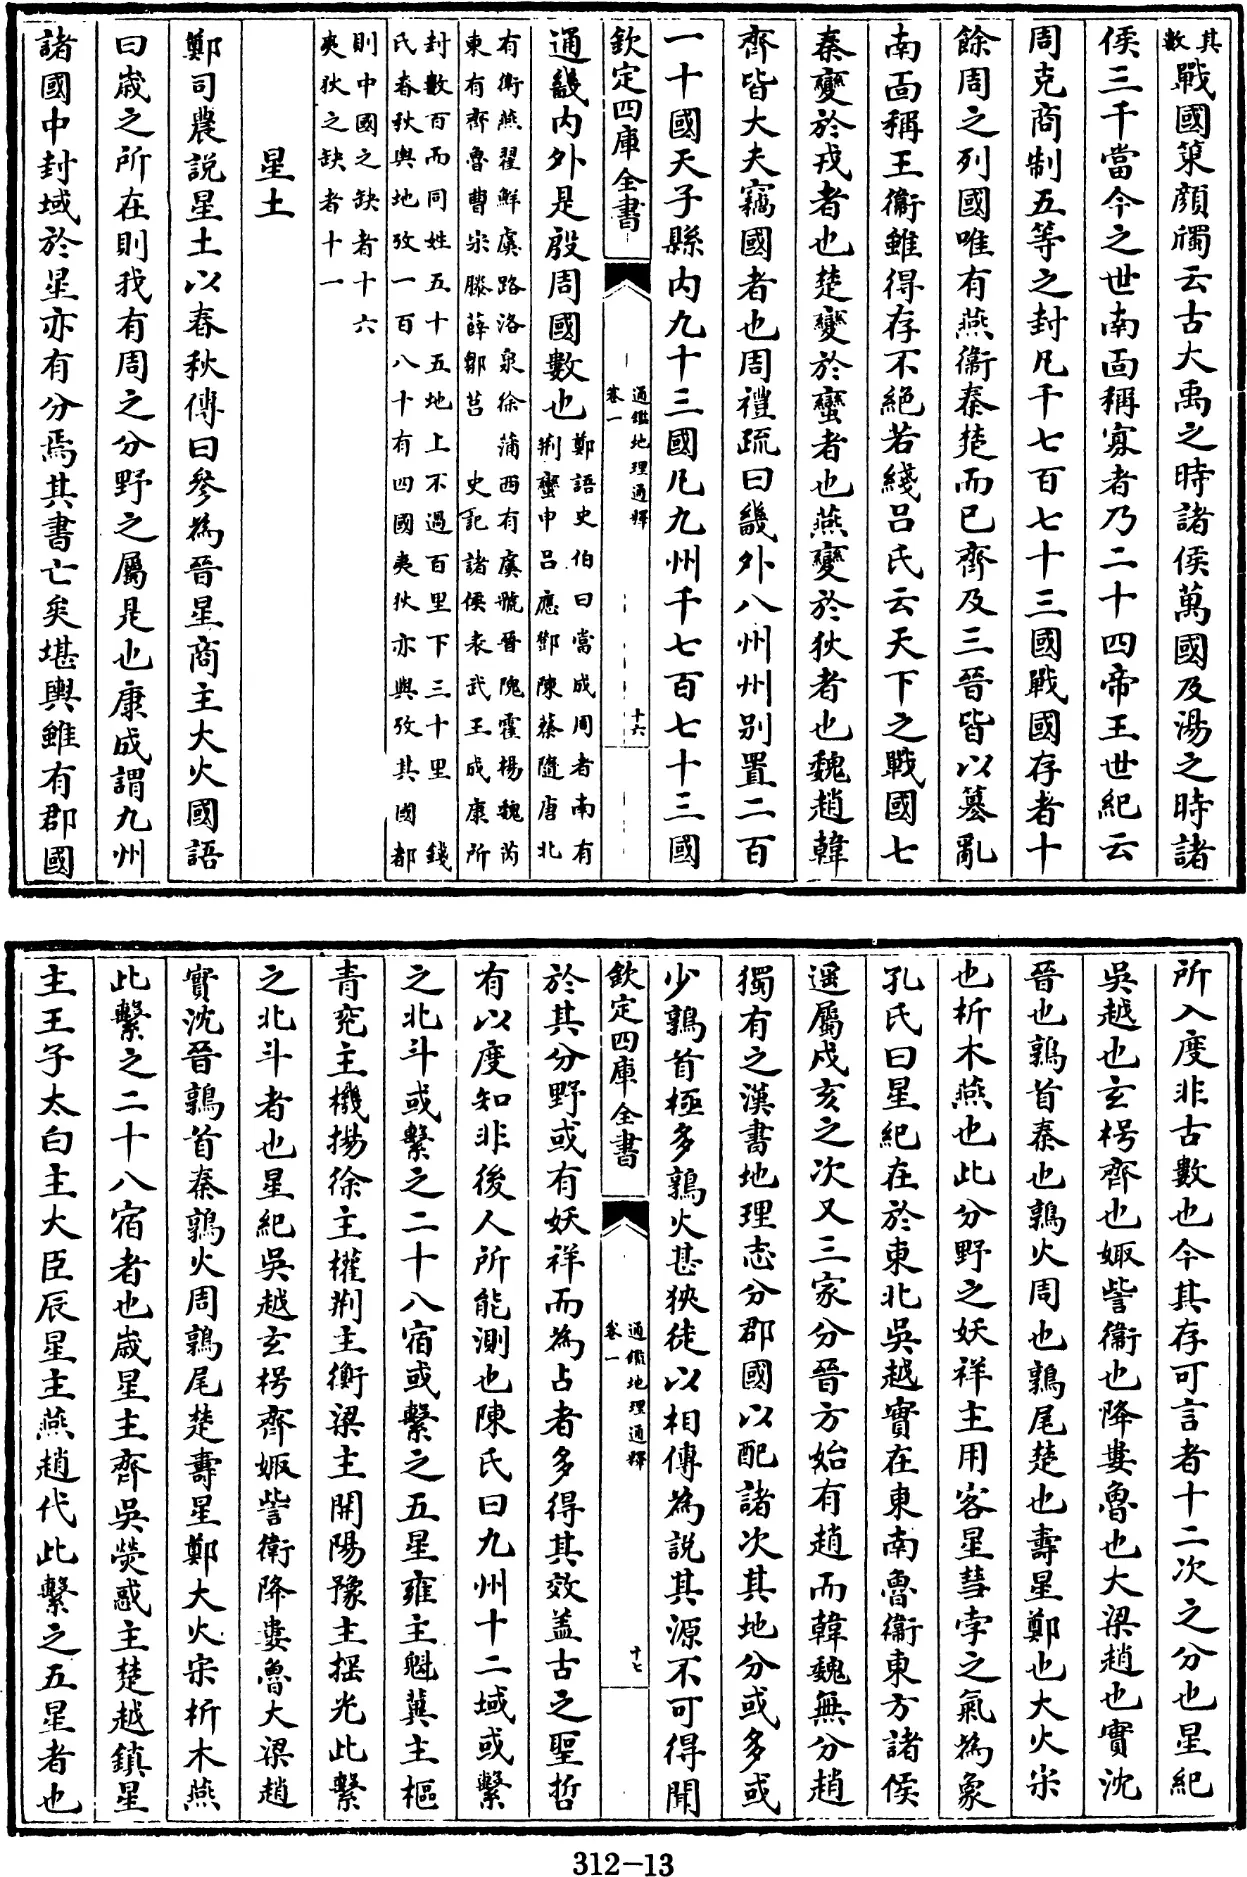 其數戰國䇿顔斶云古大禹之時諸侯萬國及湯之時諸
侯三千當今之世南面稱寡者乃二十四帝王世紀云
周克商制五等之封凡千七百七十三國戰國存者十
餘周之列國唯有燕衞秦楚而已齊及三晉皆以簒亂
南面稱王衞雖得存不絶若綫吕氏云天下之戰國七
秦變於戎者也楚變於蠻者也燕變於狄者也魏趙韓
齊皆大夫竊國者也周禮疏曰畿外八州州别置二百
一十國天子縣内九十三國凡九州千七百七十三國
欽定四庫全書
通鑑地理通釋
卷一
十六
通畿内外是殷周國數也鄭語史伯曰當成周者南有
荆蠻申吕應鄧陳蔡隨唐北
有衞燕翟鮮虞路洛泉徐蒲西有虞虢晉隗霍楊魏芮
東有齊魯曹宋滕薛鄒莒 史記諸侯表武王成康所
封數百而同姓五十五地上不過百里下三十里 錢
氏春秋輿地攷一百八十有四國夷狄亦與攷其國都
則中國之缺者十六
夷狄之缺者十一
星土
鄭司農説星土以春秋傳曰參為晉星商主大火國語
曰歲之所在則我有周之分野之屬是也康成謂九州
諸國中封域於星亦有分焉其書亡矣堪輿雖有郡國
所入度非古數也今其存可言者十二次之分也星紀
吳越也玄枵齊也娵訾衞也降婁魯也大梁趙也實沈
晉也鶉首秦也鶉火周也鶉尾楚也壽星鄭也大火宋
也析木燕也此分野之妖祥主用客星彗孛之氣為象
孔氏曰星紀在於東北吳越實在東南魯衞東方諸侯
遥屬戌亥之次又三家分晉方始有趙而韓魏無分趙
獨有之漢書地理志分郡國以配諸次其地分或多或
少鶉首極多鶉火甚狹徒以相傳為説其源不可得聞
欽定四庫全書
通鑑地理通釋
卷一
十七
於其分野或有妖祥而為占者多得其效葢古之聖哲
有以度知非後人所能測也陳氏曰九州十二域或繫
之北斗或繫之二十八宿或繫之五星雍主魁冀主樞
青兖主機揚徐主權荆主衡梁主開陽豫主揺光此繫
之北斗者也星紀吳越玄枵齊娵訾衞降婁魯大梁趙
實沈晉鶉首秦鶉火周鶉尾楚壽星鄭大火宋析木燕
此繫之二十八宿者也歲星主齊吳熒惑主楚越鎮星
主王子太白主大臣辰星主燕趙代此繫之五星者也
312-13